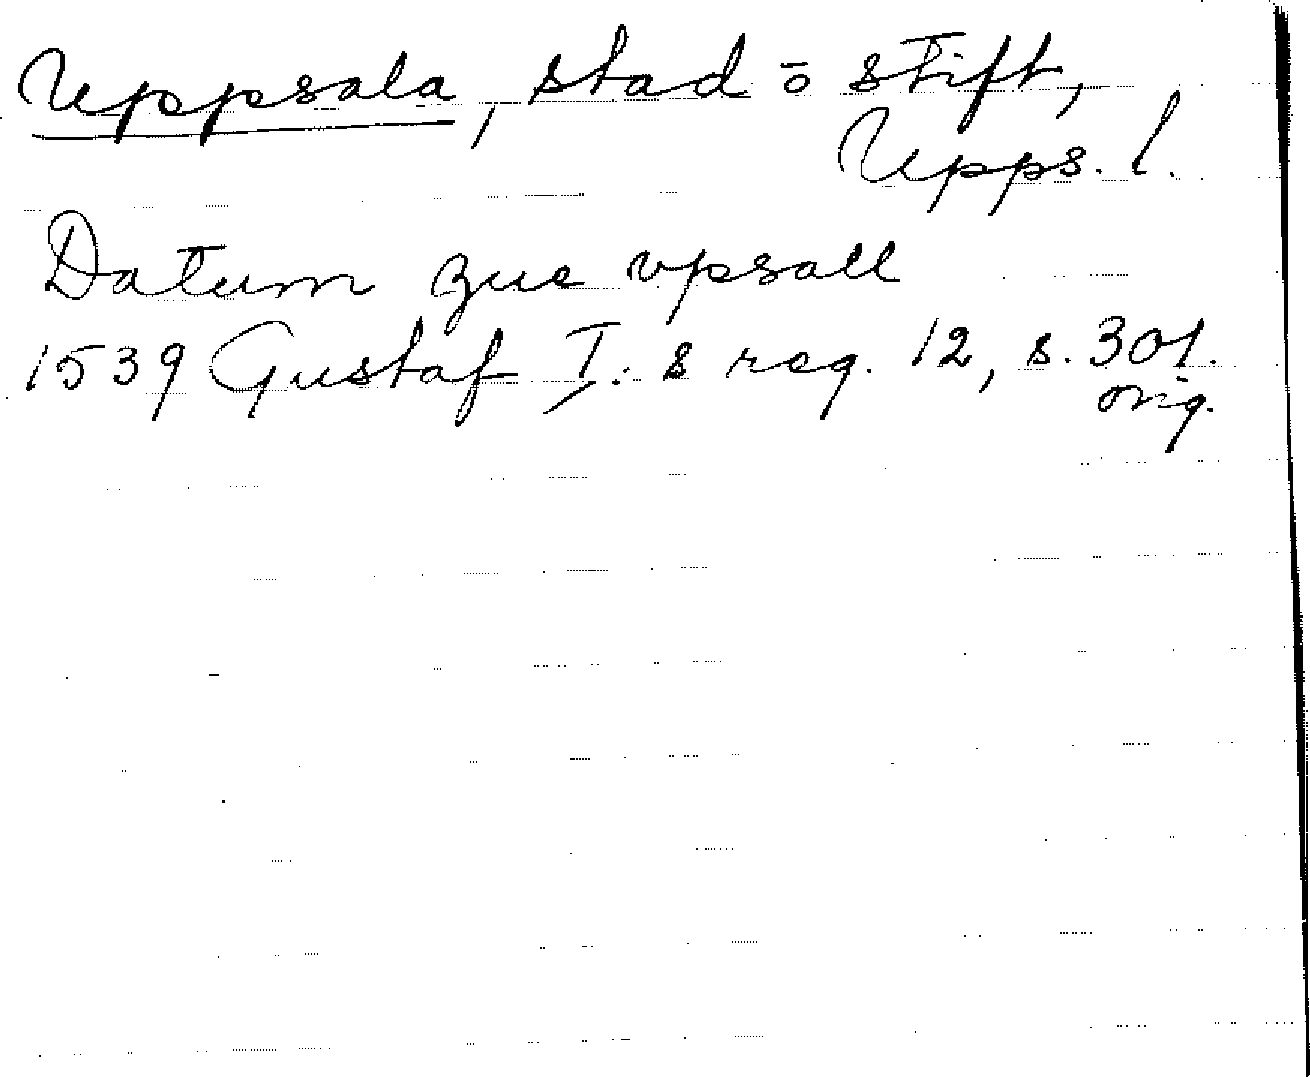 Uppsala, stad ō stift,
Upps. l.
Datum zue vpsall
1539 Gustaf I:s reg. 12, s. 301.
orig.